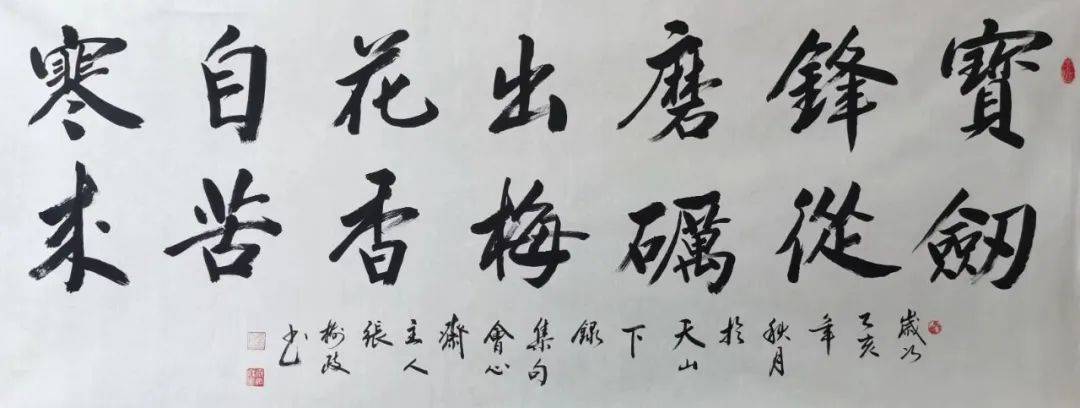 寶劔
鋒從
磨礪
出梅
花香
自苦
寒来
歲次
己亥
年
秋月
於
天山
下
録
集句
會心
齋
主人
張
政
书